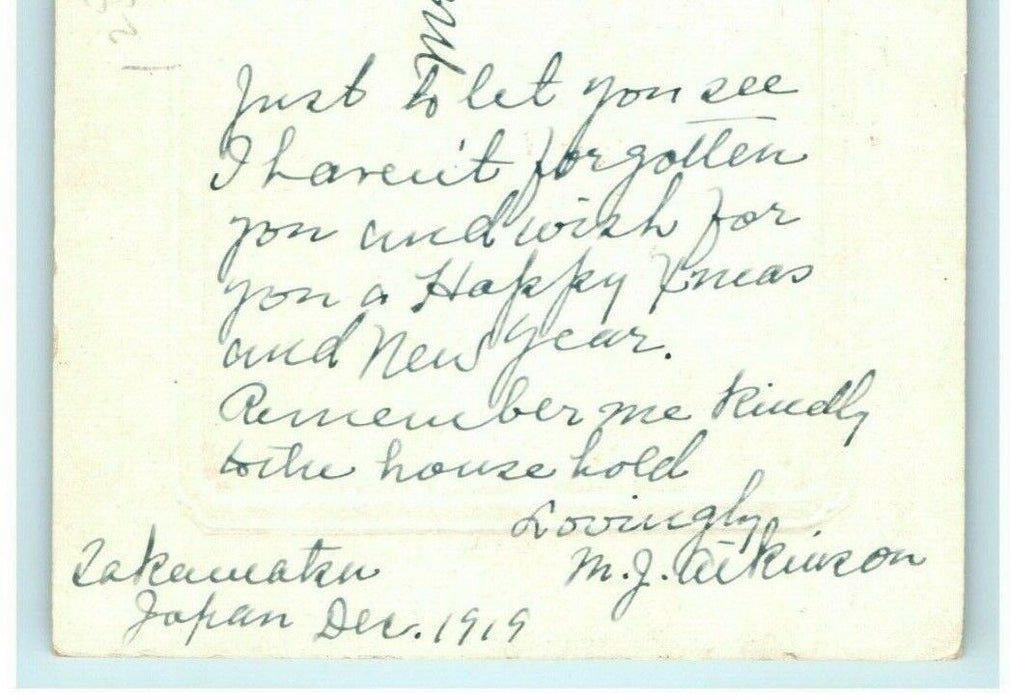 Just to let you see
I haven't forgotten
you and wish for
you a Happy Xmas
and New Year.
Remember me kindly
to the household
Lovingly,
M. J. Atkinson
Takamatsu
Japan Dec. 1919